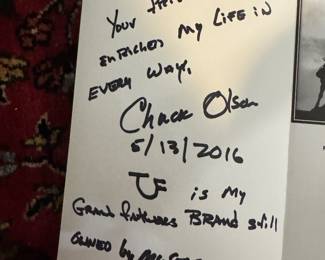 Your
enriched my Life in
every way.
Chuck Olson
5/13/2016
is my
Grand Fathers Brand still
owned by